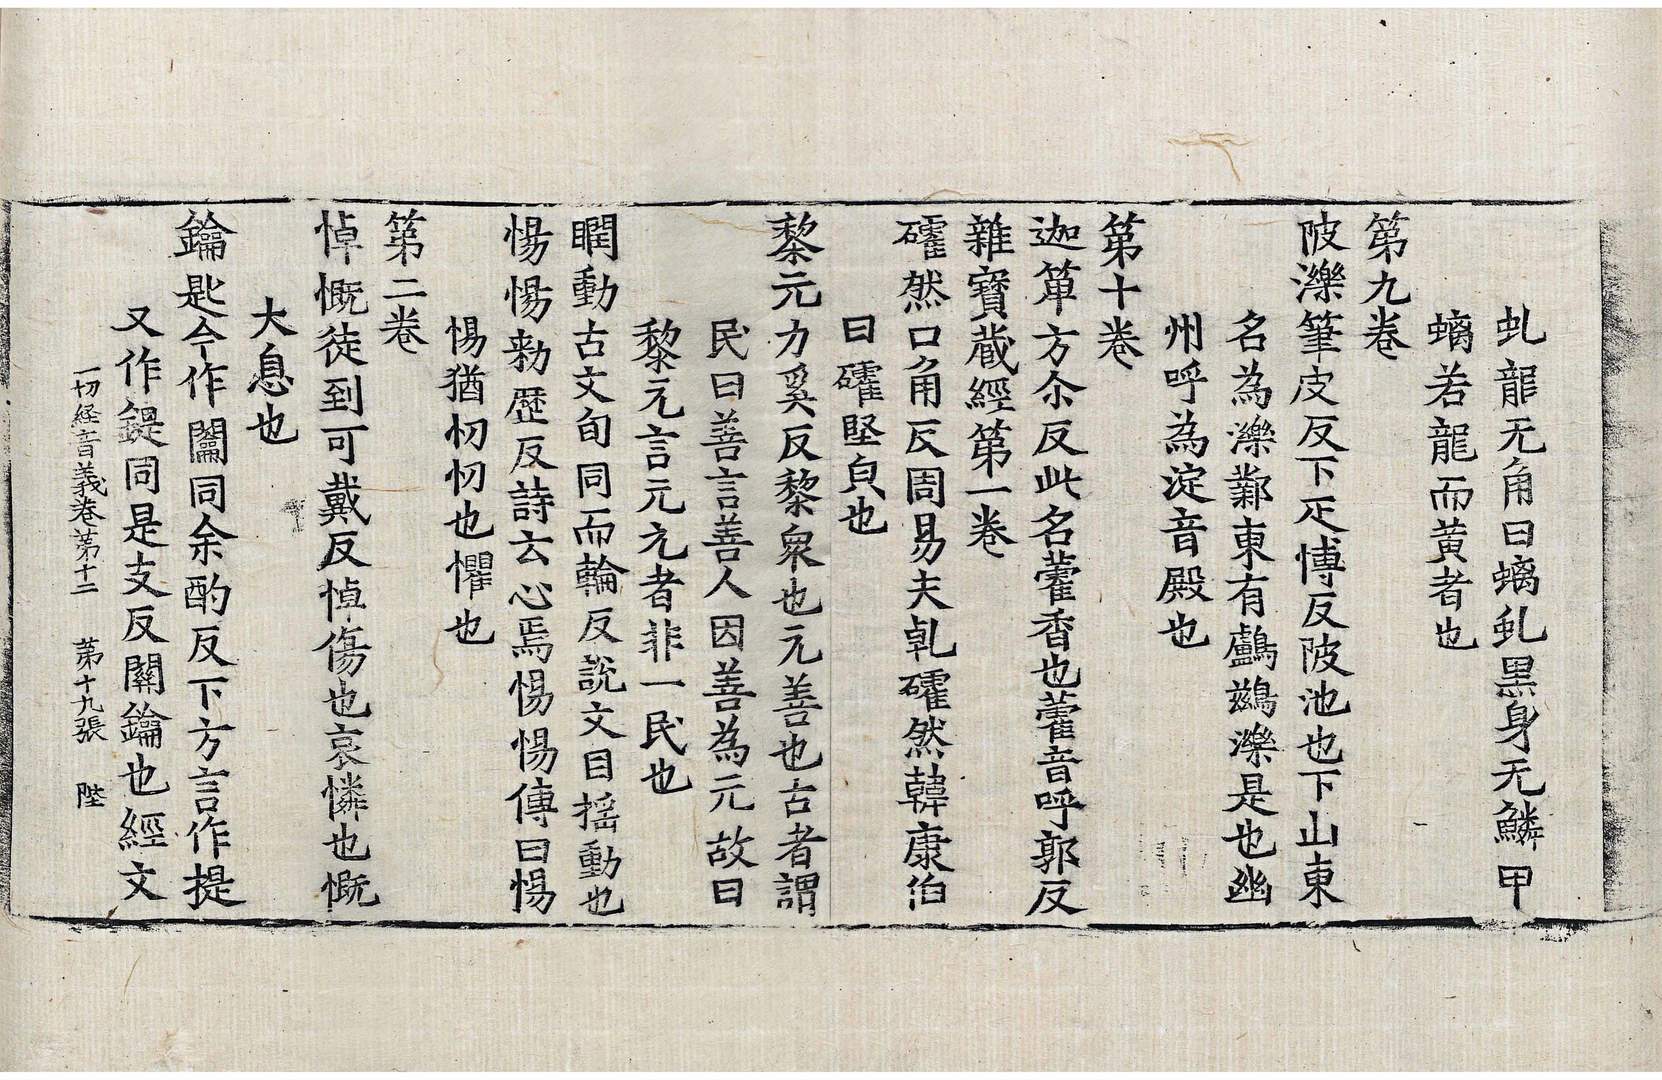 虬龍无角曰螭虬黒身无鱗甲
螭若龍而黄者也
第九卷
陂濼筆皮反下疋博反陂池也下山東
名為濼鄴東有鸕鷀濼是也幽
州呼為淀音殿也
第十卷
迦箄方尒反此名藿香也藿音呼郭反
雜寶蔵經第一卷
礭然口角反周易夫乹礭然韓康伯
曰礭堅貞也
黎元力奚反黎衆也元善也古者謂
民曰善言善人因善為元故曰
黎元言元元者非一民也
瞤動古文旬同而輪反說文目搖動也
惕惕勑歷反詩云心焉惕惕傳曰惕
惕猶忉忉也懼也
第二卷
悼慨徒到可戴反悼傷也哀憐也慨
大息也
鑰匙今作闟同余酌反下方言作提
又作鍉同是支反關鑰也經文
一切経音義卷第十二 第十九張 陛